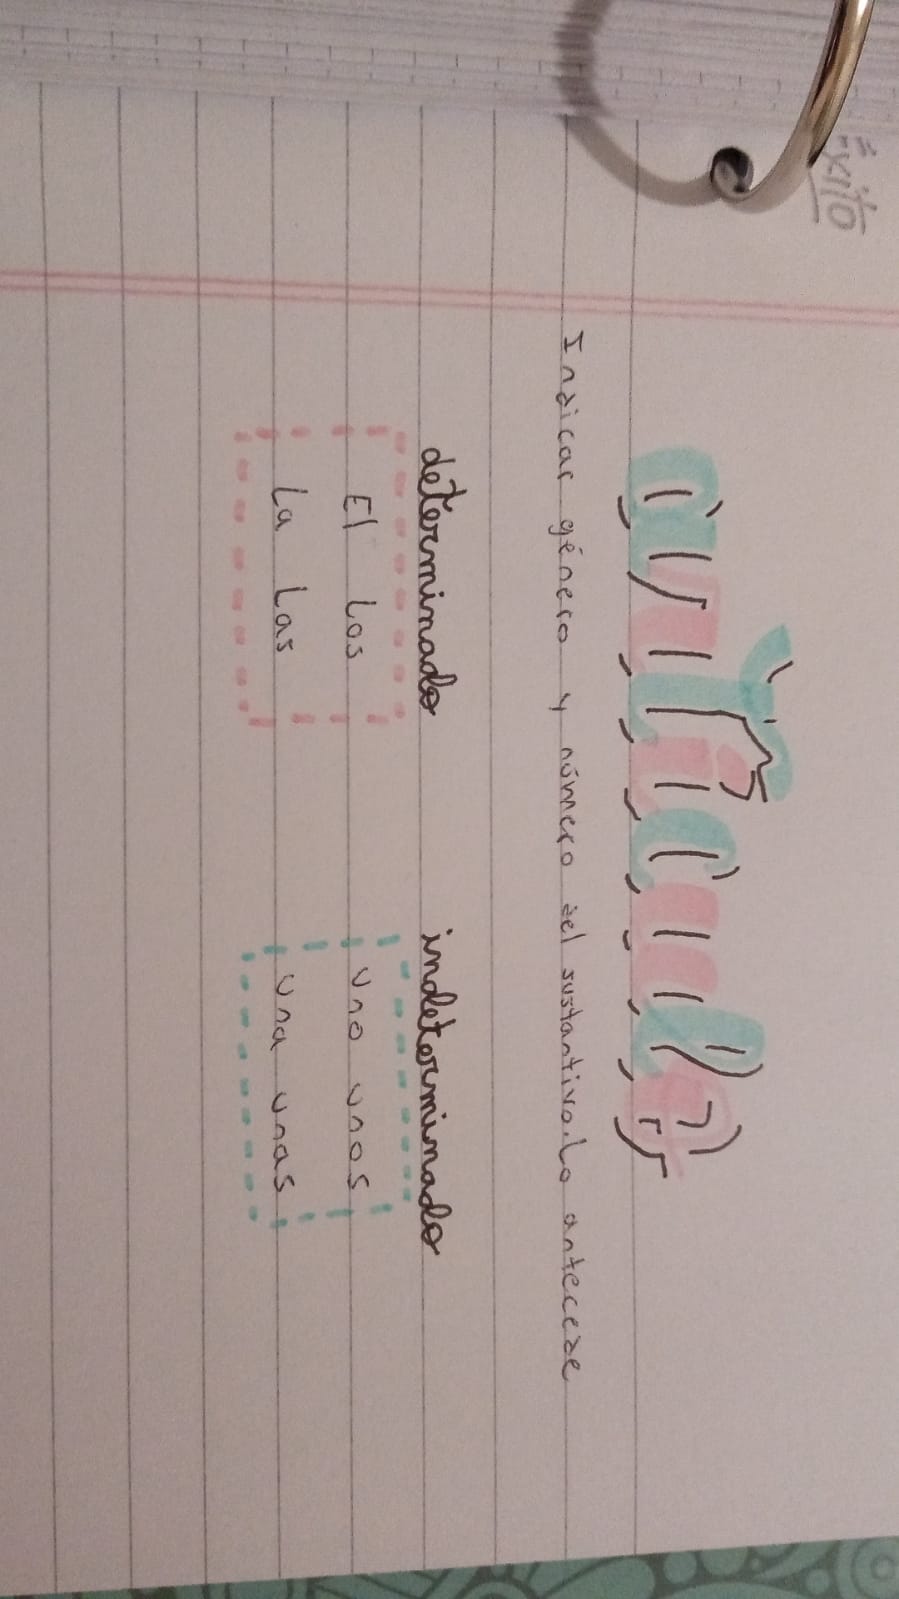 éxito
artículo
Indicar género y número del sustantivo. Lo antecede
determinado indeterminado
El Los uno unos
La Las una unas